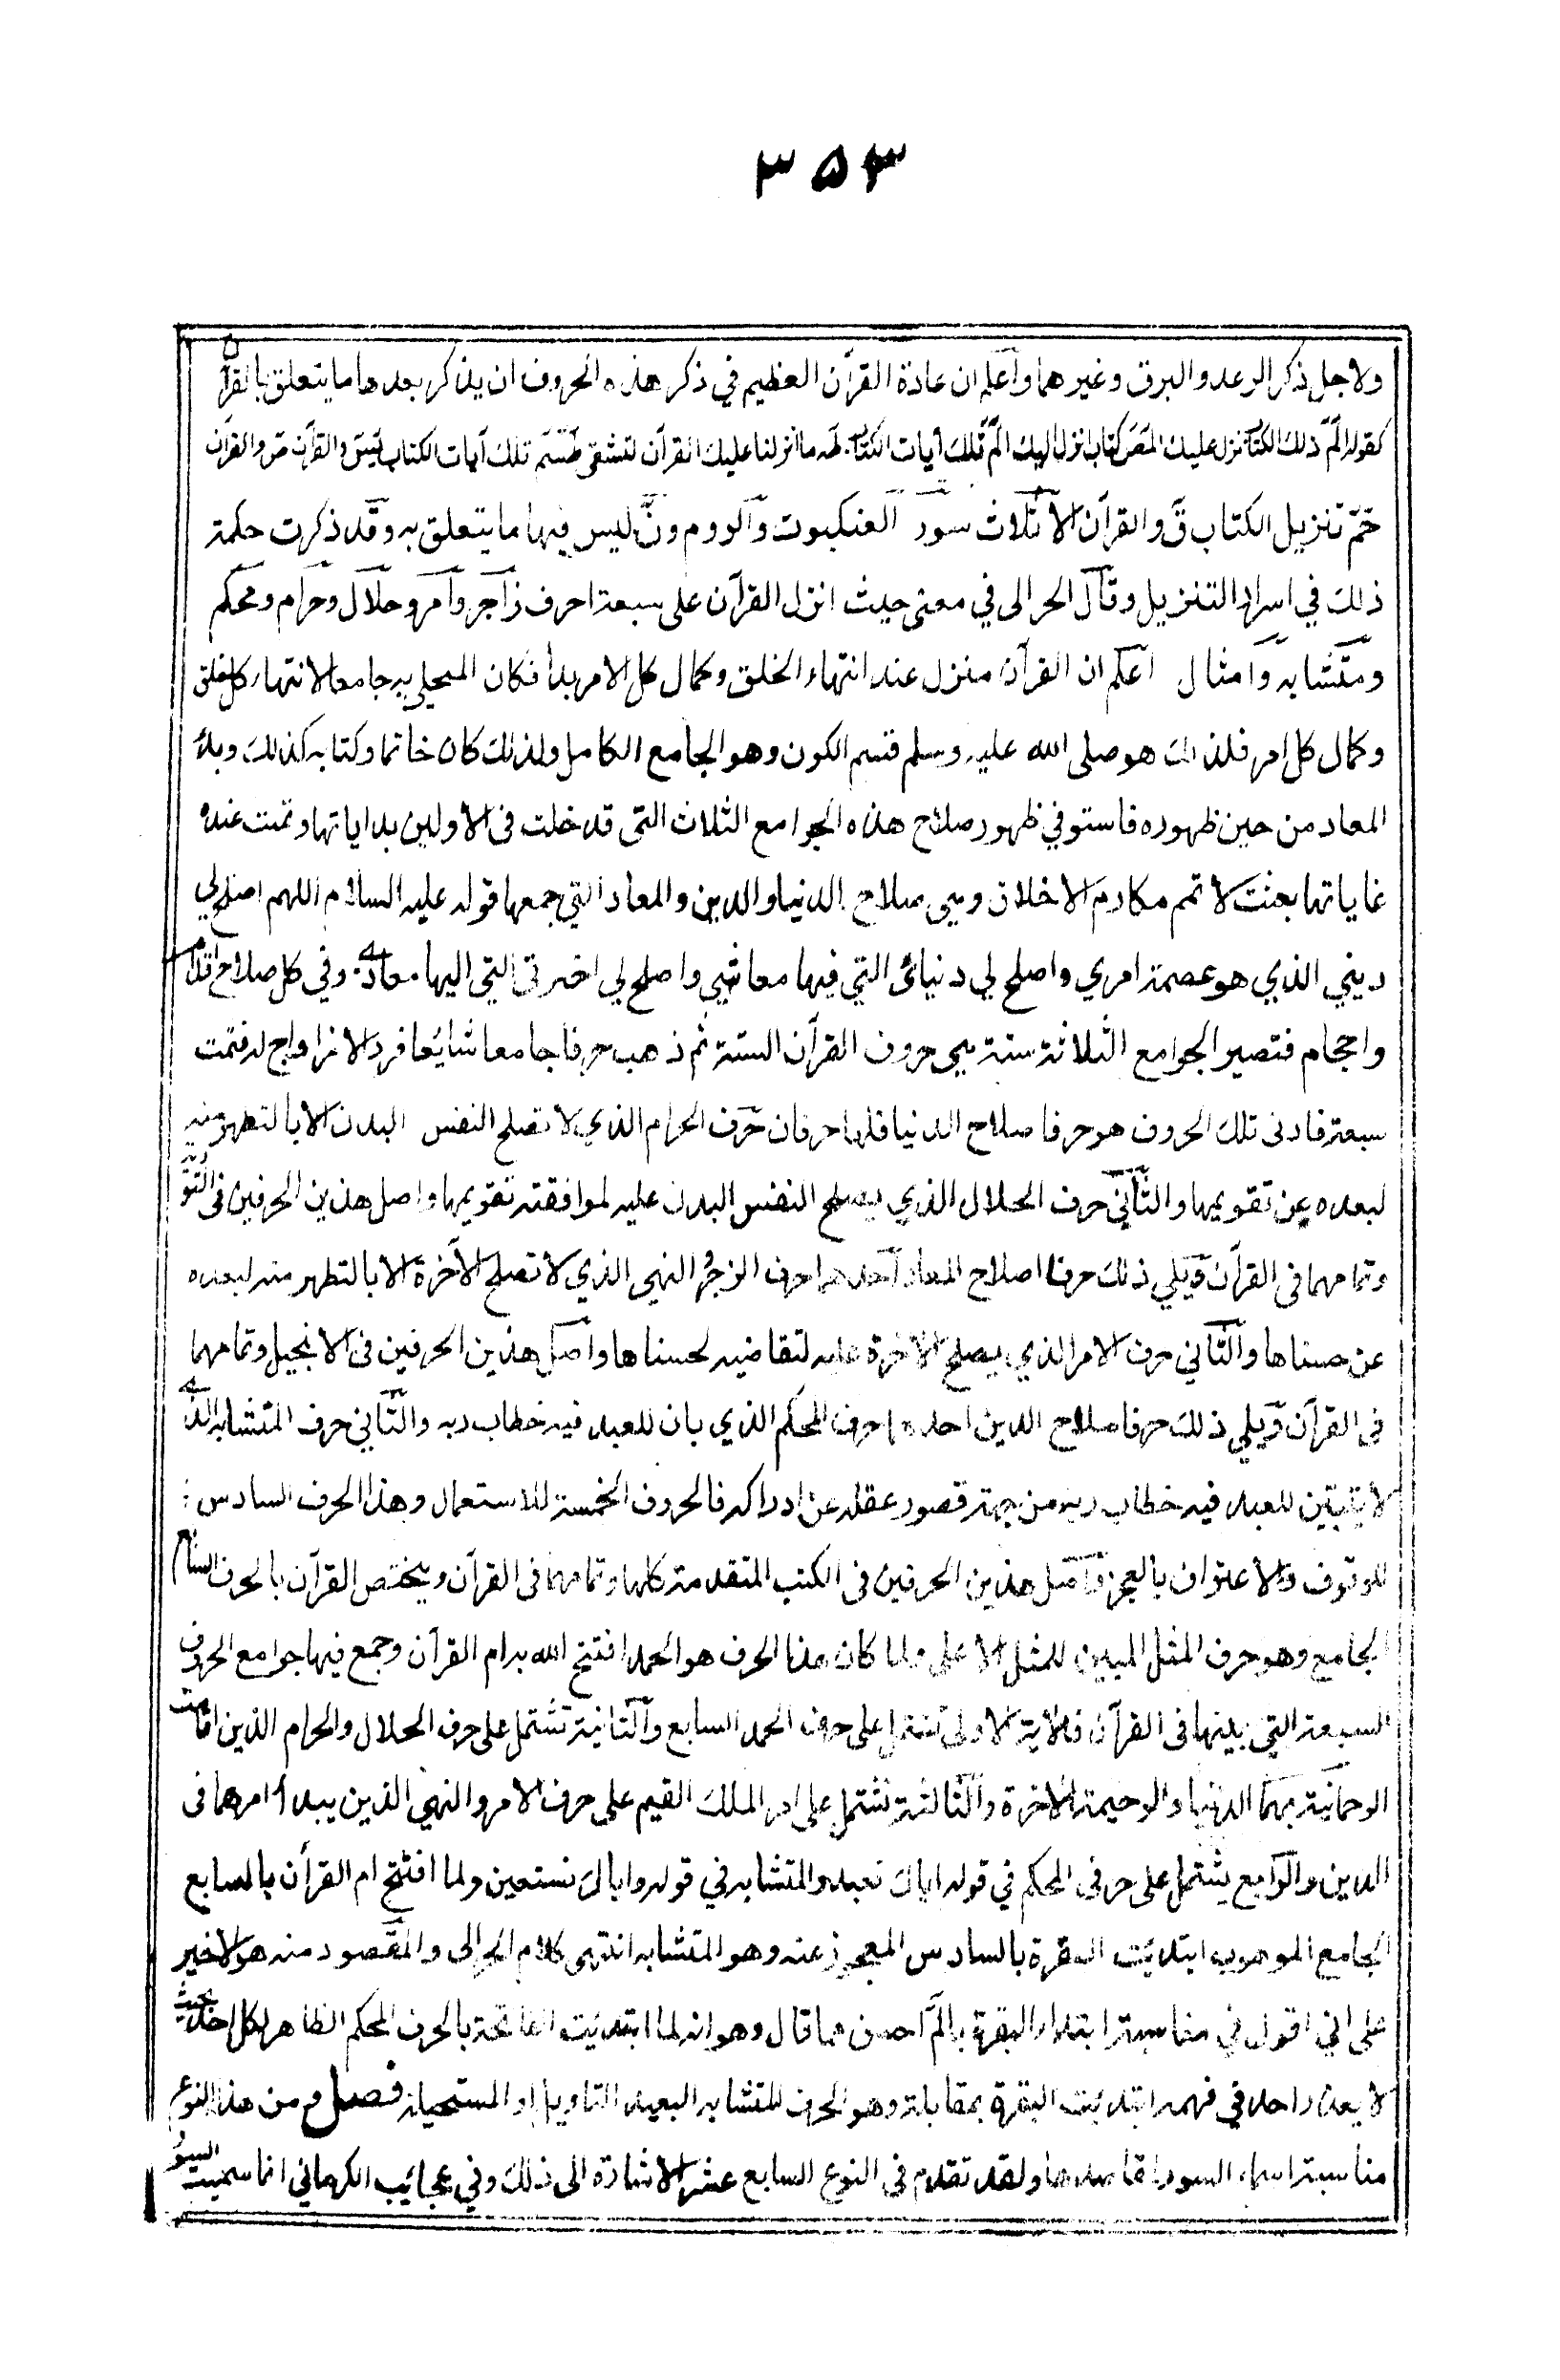 ٣٥٣
ولاجل ذكر الرعد والبرق وغيرهما واعلم ان عادة القرآن العظيم في ذكر هذه الحروف ان يذكر بعدها ما يتعلق بالقرآن
كقوله الم ذلك الكتاب نزل عليك المص كتاب انزل اليك الم تلك آيات الكتاب طه ما انزلنا عليك القرآن لتشقى طسم تلك آيات الكتاب يس والقرآن ص والقرآن
حم تنزيل الكتاب ق والقرآن الا ثلاث سور العنكبوت والروم ون ليس فيها ما يتعلق به وقد ذكرت حكمة
ذلك في اسرار التنزيل وقال الحرالى في معنى حديث انزل القرآن على سبعة احرف زاجر وآمر وحلال وحرام ومحكم
ومتشابه وامثال اعلم ان القرآن منزل عند انتهاء الخلق وكمال كل الامر بدأ فكان المتحلي به جامعا لانتهاء كل خلق
وكمال كل امر فلذلك هو صلى الله عليه وسلم قسم الكون وهو الجامع الكامل ولذلك كان خاتما وكتابه كذلك وبدأ
المعاد من حين ظهوره فاستوفي ظهور صلاح هذه الجوامع الثلاث التى قد خلت فى الاولين بداياتها وتمت عنده
غاياتها بعثت لاتمم مكارم الاخلاق وهي صلاح الدنيا والدين والمعاد التي جمعها قوله عليه السلام اللهم اصلح لي
ديني الذي هو عصمة امري واصلح لي دنيائ التي فيها معاشي واصلح لي اخرتى التي اليها معادي وفي كل صلاح اقدام
واحجام فتصير الجوامع الثلاثة ستة هي حروف القرآن الستة ثم ذهب حرفا جامعا شايعا فردا لا ازواج له فتمت
سبعة فادنى تلك الحروف هو حرفا صلاح الدنيا فلها حرفان حرف الحرام الذي لا تصلح النفس البدن الا بالتطهر منه
لبعده عن تقويمها والثاني حرف الحلال الذي يصلح النفس البدن عليه لموافقته تقويمها واصل هذين الحرفين فى التو
وتمامهما فى القرآن ويلي ذلك حرفا اصلاح المعاد احدهما حرف الزجر والنهي الذي لا تصلح الآخرة الا بالتطهر منه لبعده
عن حسناها والثاني حرف الامر الذي يصلح الآخرة عليه لتقاضيه لحسناها واصل هذين الحرفين فى الانجيل وتمامهما
فى القرآن ويلي ذلك حرفا صلاح الدين احدهما حرف المحكم الذي بان للعبد فيه خطاب ربه والثاني حرف المتشابه الذي
لا يتبين للعبد فيه خطاب ربه من جهة قصور عقله عن ادراكه فالحروف الخمسة للاستعمال وهذا الحرف السادس
للوقوف والاعتراف بالعجز واصل هذين الحرفين فى الكتب المتقدمة كلها وتمامهما فى القرآن ويختص القرآن بالحرف السابع
الجامع وهو حرف المثل المبين للمثل الاعلى ولما كان هذا الحرف هو الحمد افتتح الله به ام القرآن وجمع فيها جوامع الحروف
السبعة التي بينها فى القرآن فالآية الاولى تشتمل على حرف الحمد السابع والثانية تشتمل على حرف الحلال والحرام الذين اقامت
الرحمانية بهما الدنيا والرحيمة الآخرة والثالثة تشتمل على امر الملك القيم على حرف الامر والنهي الذين يبدأ امرهما فى
الدين والرابع يشتمل على حرفى المحكم في قوله اياك نعبد والمتشابه في قوله واياك نستعين ولما افتتح ام القرآن بالسابع
الجامع الموهوب ابتدئت البقرة بالسادس المعجوز عنه وهو المتشابه انتهى كلام الحرالى والمقصود منه هو الاخير
على اني اقول في مناسبة ابتداء البقرة بالم احسن مما قال وهو انه لما ابتدئت الفاتحة بالحرف المحكم الظاهر لكل احد بحيث
لا يعذر احد في فهمه ابتدئت البقرة بمقابله وهو الحرف المتشابه البعيد التاويل او المستحيله فصل ومن هذا النوع
مناسبة اسماء السور لمقاصدها ولقد تقدم فى النوع السابع عشر الاشارة الى ذلك وفي عجايب الكرماني انما سميت السور